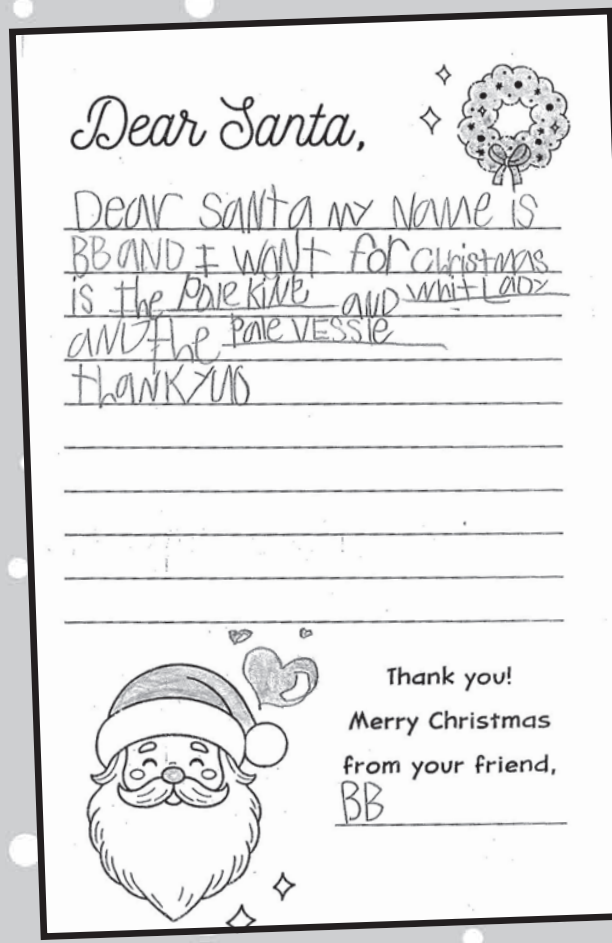 Dear Santa,
Dear Santa my Name is
BB AND I WANT for christmas
is the Pale KINE AND Whit LADY
AND the Pale VESSIE
thANK YUO
Thank you!
Merry Christmas
from your friend,
BB